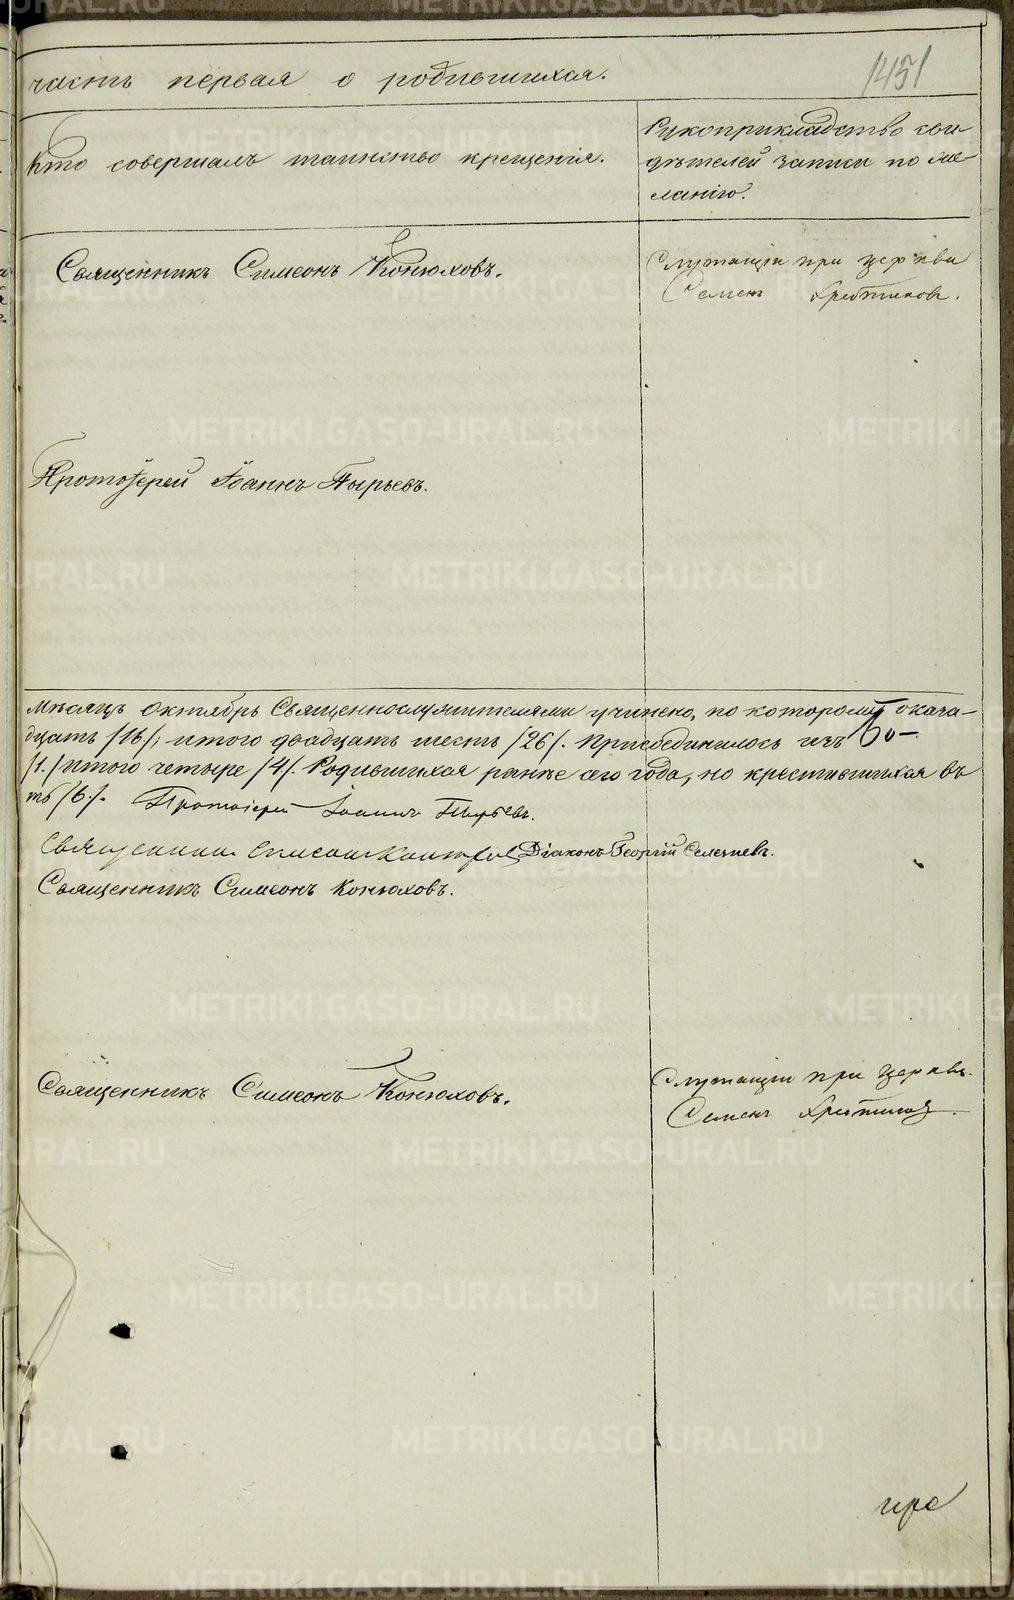 1451
часть первая о родившихся.
Кто совершалъ таинство крещенія.
Рукоприкладство сви-
дѣтелей записи по же-
ланію.
Священникъ Симеонъ Конюховъ.
Служащій при церкви
Семен
Протоіерей Іоаннъ Пырьевъ.
Мѣсяцъ Октябрь Священнослужителями учинено, по которому оказа-
дцать /16/, итого двадцать шесть /26/. Присоединилось изъ
/1./ итого четыре /4/. Родившихся ранѣе сего года, но крестившихся въ
ть /6/. Протоіерей Іоаннъ Пырьевъ.
Священникъ Діаконъ Георгій Селезневъ.
Священникъ Симеонъ Конюховъ.
Священникъ Симеонъ Конюховъ.
Служащій при церкви
Семенъ
METRIKI.GASO-URAL.RU